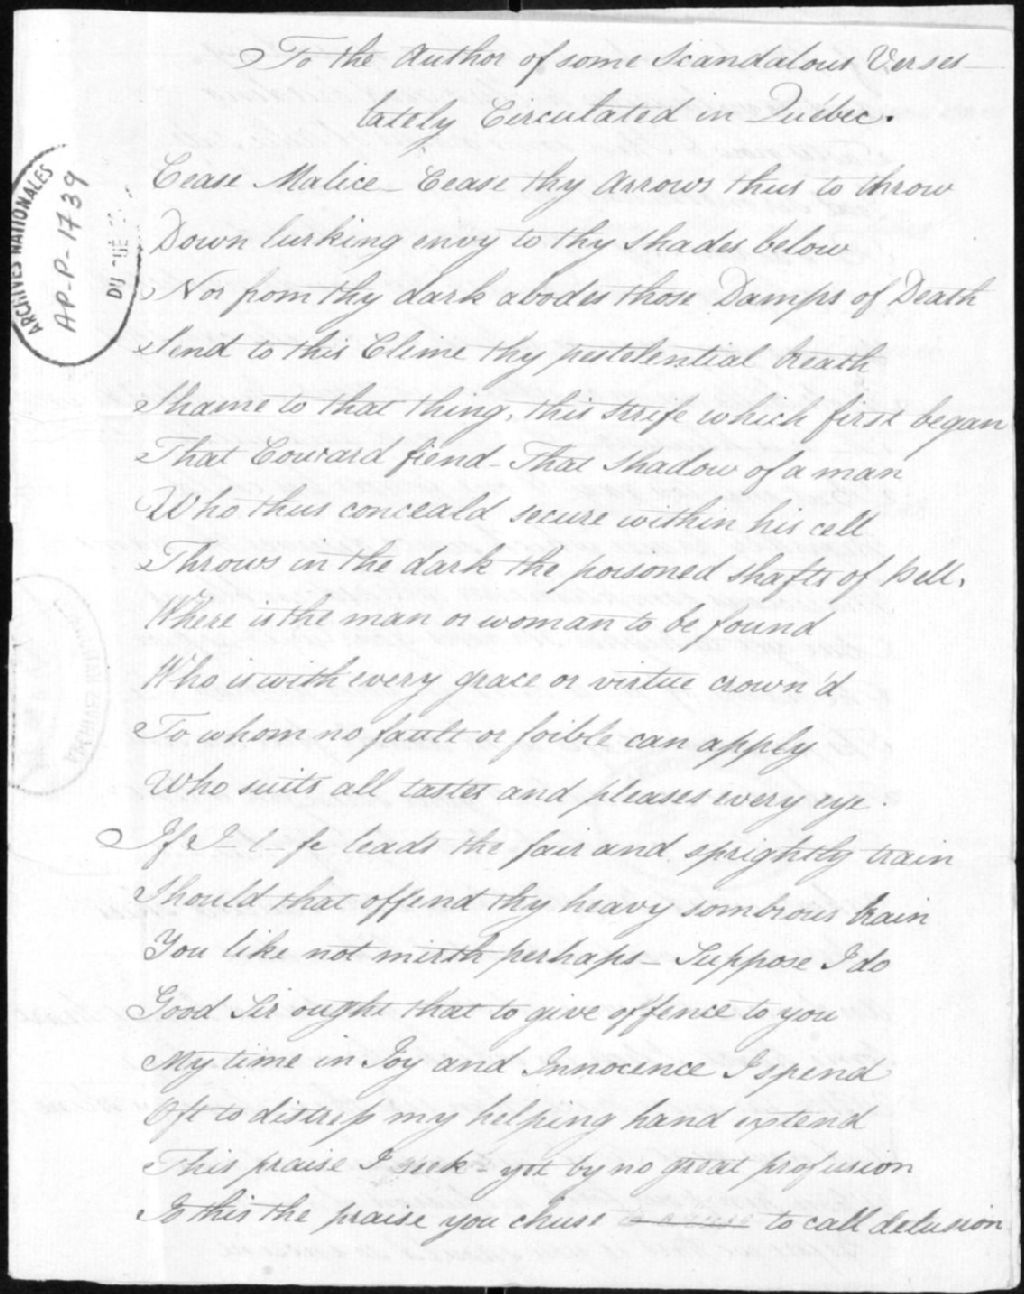 To the Author of some Scandalous Verses
lately Circulated in Quebec.
Cease Malice – Cease thy Arrows thus to throw
Down lurking envy to thy shades below
Nor from thy dark abodes those Damps of Death
Send to this Clime thy pestelential breath
Shame to that thing, this strife which first began
That Coward fiend – That shadow of a man
Who thus conceald secure within his cell
Throws in the dark the poisoned shafts of Hell.
Where is the man or woman to be found
Who is with every grace or virtue crown'd
To whom no fault or foible can apply
Who suits all tastes and pleases every eye
If fe leads the fair and sprightly train
Should that offend thy heavy sombrous brain
You like not mirth perhaps – Suppose I do
Good Sir ought that to give offence to you
My time in Joy and Innocence I spend
Oft to distress my helping hand extend
This praise I seek – yet by no great profusion
Is this the praise you chuse to call delusion
ARCHIVES NATIONALES
AP-P-1739
DU QUÉBEC